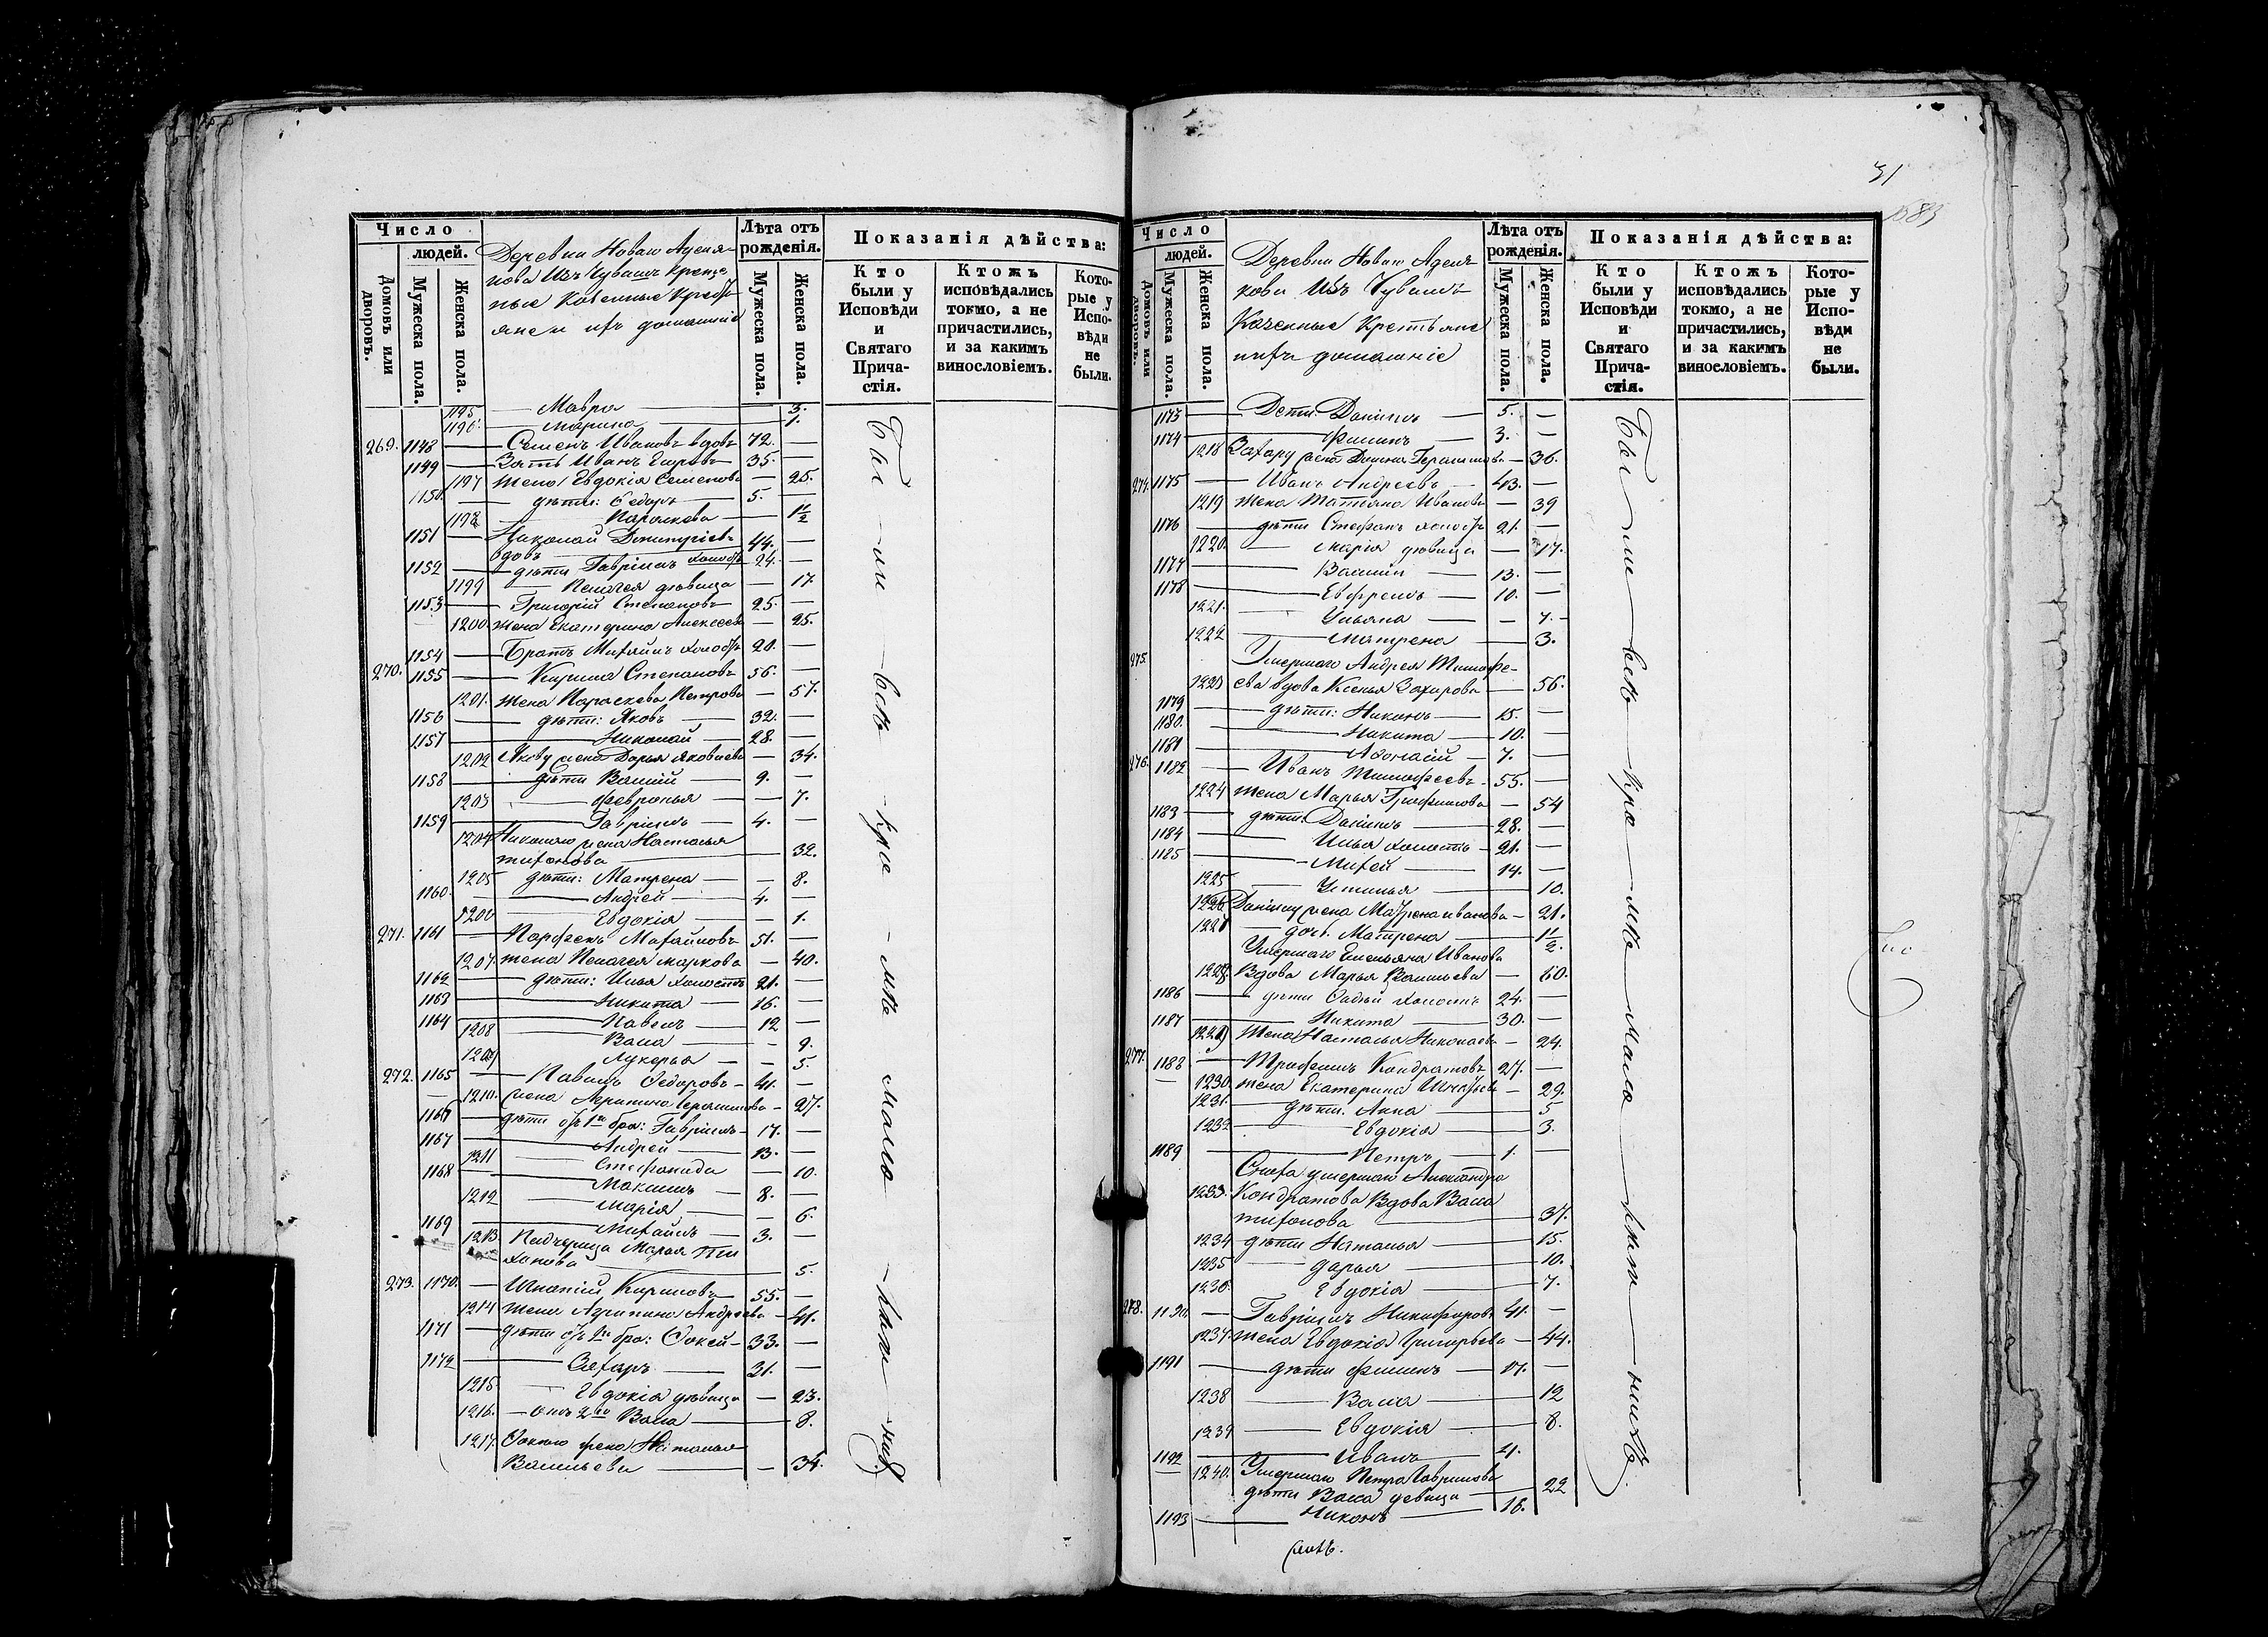 Число
людей.
Домовъ или дворовъ.
Мужеска пола.
Женска пола.
Деревни Новаго
нова Изъ Чувашъ
ные Казенные
ихъ домашніе
Лѣта отъ рожденія.
Мужеска пола.
Женска пола.
Показанія дѣйства:
Кто были у Исповѣди и Святаго Прича-стія.
Ктожъ исповѣдались токмо, а не причастились, и за какимъ винословіемъ.
Кото-рые у Испо-вѣди не были.
1195 Мавра — 3.
1196 Марина — 1.
269. 1148 Семенъ Ивановъ вдовъ 72. —
1149 Зять Иванъ 35. —
1197 жена Евдокія Семенова — 25.
1150 дѣти: Ѳедоръ 5. —
1198 Параскева — 1 1/2
1151 Николай Дмитріевъ
вдовъ 44. —
1152 дѣти Гавріилъ холостъ 24. —
1199 Пелагея дѣвица — 17
1153 Григорій Степановъ 25. —
1200 жена Екатерина Алексеева — 25.
1154 Братъ Михайлъ холостъ 20. —
270. 1155 Кирила Степановъ 56. —
1201. жена Параскева Петрова — 57.
1156 дѣти: Яковъ 32. —
1157 Николай 28. —
1202 Якову жена Дарья Яковлева — 34.
1158 дѣти Василій 9. —
1203 Февронья — 7.
1159 Гавріилъ 4. —
1204 Николаю жена Настасья
тихонова 32.
1205 дѣти: Матрена — 8.
1160 Андрей 4. —
1206 Евдокія — 1.
271. 1161 Парфенъ Михайловъ 51. —
1207 жена Пелагея маркова — 40.
1162 дѣти: Илья холостъ 21. —
1163 Никита 16. —
1164 Павелъ 12 —
1208 Васа — 9.
1209 Лукерья — 5.
272. 1165 Павелъ Ѳедоровъ 41. —
1210. жена Агрипина Герасимова — 27.
1166 дѣти отъ 1го бра: Гавріилъ 17. —
1167 Андрей 13. —
1211 Стефанида — 10.
1168 Максимъ 8. —
1212 Марія — 6.
1169 Михайлъ 3. —
1213 Падчерица Марья Ти
хонова 5.
273. 1170. Игнатій Кириловъ 55. —
1214 жена Агрипина Андреева — 41.
1171 дѣти отъ 1го бра: 33. —
1172 Захаръ 31. —
1215 Евдокія дѣвица — 23.
1216. отъ 2го Васа 8.
1217. жена Наталья
Васильева — 34.
31
1583
Число
людей.
Домовъ или дворовъ.
Мужеска пола
Женска пола.
Деревни Новаго
кова Изъ Чувашъ
Казенные Крестьяне
ихъ домашніе
Лѣта отъ рожденія.
Мужеска пола.
Женска пола.
Показанія дѣйства:
Кто были у Исповѣди и Святаго Прича-стія.
Ктожъ исповѣдались токмо, а не причастились, и за какимъ винословіемъ.
Кото-рые у Испо-вѣди не были.
1173 Дети: Даніилъ 5. —
1174 Филипъ 3. —
1218 Захару жена Герасимова — 36.
274. 1175 Иванъ Андреевъ 43. —
1219 жена Татіяна Иванова — 39
1176 дѣти Стефанъ холостъ 21. —
1220. Марія дѣвица — 17.
1177 Василій 13. —
1178 Евфремъ 10. —
1221. Ульяна — 7.
1222 Матрена 3.
275. Умершаго Андрея Тимофе-
1223 ева вдова Ксенья Захарова — 56.
1179 дѣти: Никонъ 15. —
1180. Никита 10. —
1181 Афонасій 7. —
276. 1182 Иванъ Тимофеевъ 55. —
1224 жена Марья Трофимова — 54
1183 дѣти: Даніилъ 28. —
1184 Илья холостъ 21. —
1185 Михей 14. —
1225 Устинья 10.
1226 Даніилу жена Матрена иванова — 21.
1227 дочь Матрена 1 1/2.
Умершаго Емельяна Иванова
1228 Вдова Марья Васильева — 60.
1186 дѣти холостъ 24. —
1187 Никита 30. —
1229 жена Настасья Николаева — 24.
277. 1188 Трофимъ Кондратовъ 27. —
1230 жена Екатерина Игнатьева — 29.
1231. дѣти. Анна 5
1232 Евдокія 3.
1189 Петръ 1. —
Сноха умершаго Александра
1233. Кондратова Вдова Васа
тихонова 37.
1234 дѣти Наталья 15.
1235 дарья 10.
1236. Евдокія 7.
278. 1190. Гавріилъ Никифоровъ 41. —
1237. жена Евдокія Григорьева — 44.
1191 дѣти Филипъ 17. —
1238 Васа 12
1239 Евдокія 8.
1192 Иванъ 4.
1240. Умершаго Петра Гаврилова
дѣти Васа девица 22
1193 Никонъ 16.